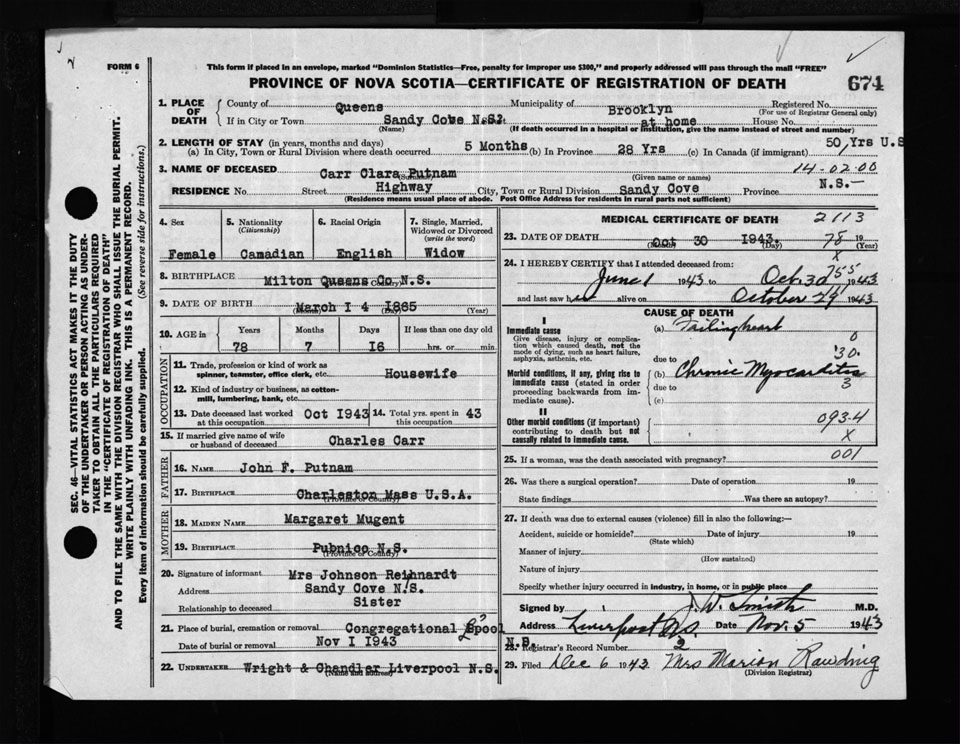 FORM 6
This form if placed in an envelope, marked "Dominion Statistics—Free, penalty for improper use $300," and properly addressed will pass through the mail "FREE"
PROVINCE OF NOVA SCOTIA—CERTIFICATE OF REGISTRATION OF DEATH
674
1. PLACE OF DEATH County of Queens Municipality of Brooklyn Registered No.
(For use of Registrar General only)
If in City or Town Sandy Cove N.S. at home House No.
(Name) (If death occurred in a hospital or institution, give the name instead of street and number)
2. LENGTH OF STAY (in years, months and days)
(a) In City, Town or Rural Division where death occurred 5 Months (b) In Province 28 Yrs (c) In Canada (if immigrant) 50 Yrs U.S
3. NAME OF DECEASED Carr Clara Putnam 14-02-00
(Given name or names)
RESIDENCE No. Street Highway City, Town or Rural Division Sandy Cove Province N.S.—
(Residence means usual place of abode. Post Office Address for residents in rural parts not sufficient)
4. Sex
Female
5. Nationality
(Citizenship)
Canadian
6. Racial Origin
English
7. Single, Married, Widowed or Divorced
(write the word)
Widow
8. BIRTHPLACE Milton Queens Co N.S.
9. DATE OF BIRTH March I 4 1865
(Month) (Day) (Year)
10. AGE in Years Months Days If less than one day old
78 7 I6 hrs. or min.
OCCUPATION
11. Trade, profession or kind of work as spinner, teamster, office clerk, etc. Housewife
12. Kind of industry or business, as cotton-mill, lumbering, bank, etc.
13. Date deceased last worked at this occupation Oct I943
14. Total yrs. spent in this occupation 43
15. If married give name of wife or husband of deceased Charles Carr
FATHER
16. NAME John F. Putnam
17. BIRTHPLACE Charleston Mass U.S.A.
(Province or Country)
MOTHER
18. MAIDEN NAME Margaret Mugent
19. BIRTHPLACE Pubnico N.S.
(Province or Country)
20. Signature of informant Mrs Johnson Reinhardt
Address Sandy Cove N.S.
Relationship to deceased Sister
21. Place of burial, cremation or removal Congregational L'pool N.S.
Date of burial or removal Nov I 1943
22. UNDERTAKER Wright & Chandler Liverpool N.S.
(Name and address)
MEDICAL CERTIFICATE OF DEATH 2113
23. DATE OF DEATH Oct 30 I943 19
(Month) (Day) (Year)
78
X
24. I HEREBY CERTIFY that I attended deceased from:
June 1 1943 to Oct. 30 1943
and last saw her alive on October 29 1943
CAUSE OF DEATH
I
Immediate cause
Give disease, injury or complication which caused death, not the mode of dying, such as heart failure, asphyxia, asthenia, etc.
(a) Failing heart
due to
Morbid conditions, if any, giving rise to immediate cause (stated in order proceeding backwards from immediate cause).
(b) Chronic Myocarditis
due to
(c)
0
30.
3
II
Other morbid conditions (if important) contributing to death but not causally related to immediate cause.
093.4
X
25. If a woman, was the death associated with pregnancy? 001
26. Was there a surgical operation? Date of operation 19
State findings Was there an autopsy?
27. If death was due to external causes (violence) fill in also the following:—
Accident, suicide or homicide? Date of injury 19
(State which)
Manner of injury
(How sustained)
Nature of injury
Specify whether injury occurred in industry, in home, or in public place
Signed by J. W. Smith M.D.
Address Liverpool N.S. Date Nov. 5 1943
28. Registrar's Record Number 2
29. Filed Dec 6 1943 Mrs Marion Rawding
(Division Registrar)
SEC. 46—VITAL STATISTICS ACT MAKES IT THE DUTY
OF THE UNDERTAKER OR PERSON ACTING AS UNDER-
TAKER TO OBTAIN ALL THE PARTICULARS REQUIRED
IN THE "CERTIFICATE OF REGISTRATION OF DEATH"
AND TO FILE THE SAME WITH THE DIVISION REGISTRAR WHO SHALL ISSUE THE BURIAL PERMIT.
WRITE PLAINLY WITH UNFADING INK. THIS IS A PERMANENT RECORD.
Every item of information should be carefully supplied. (See reverse side for instructions.)